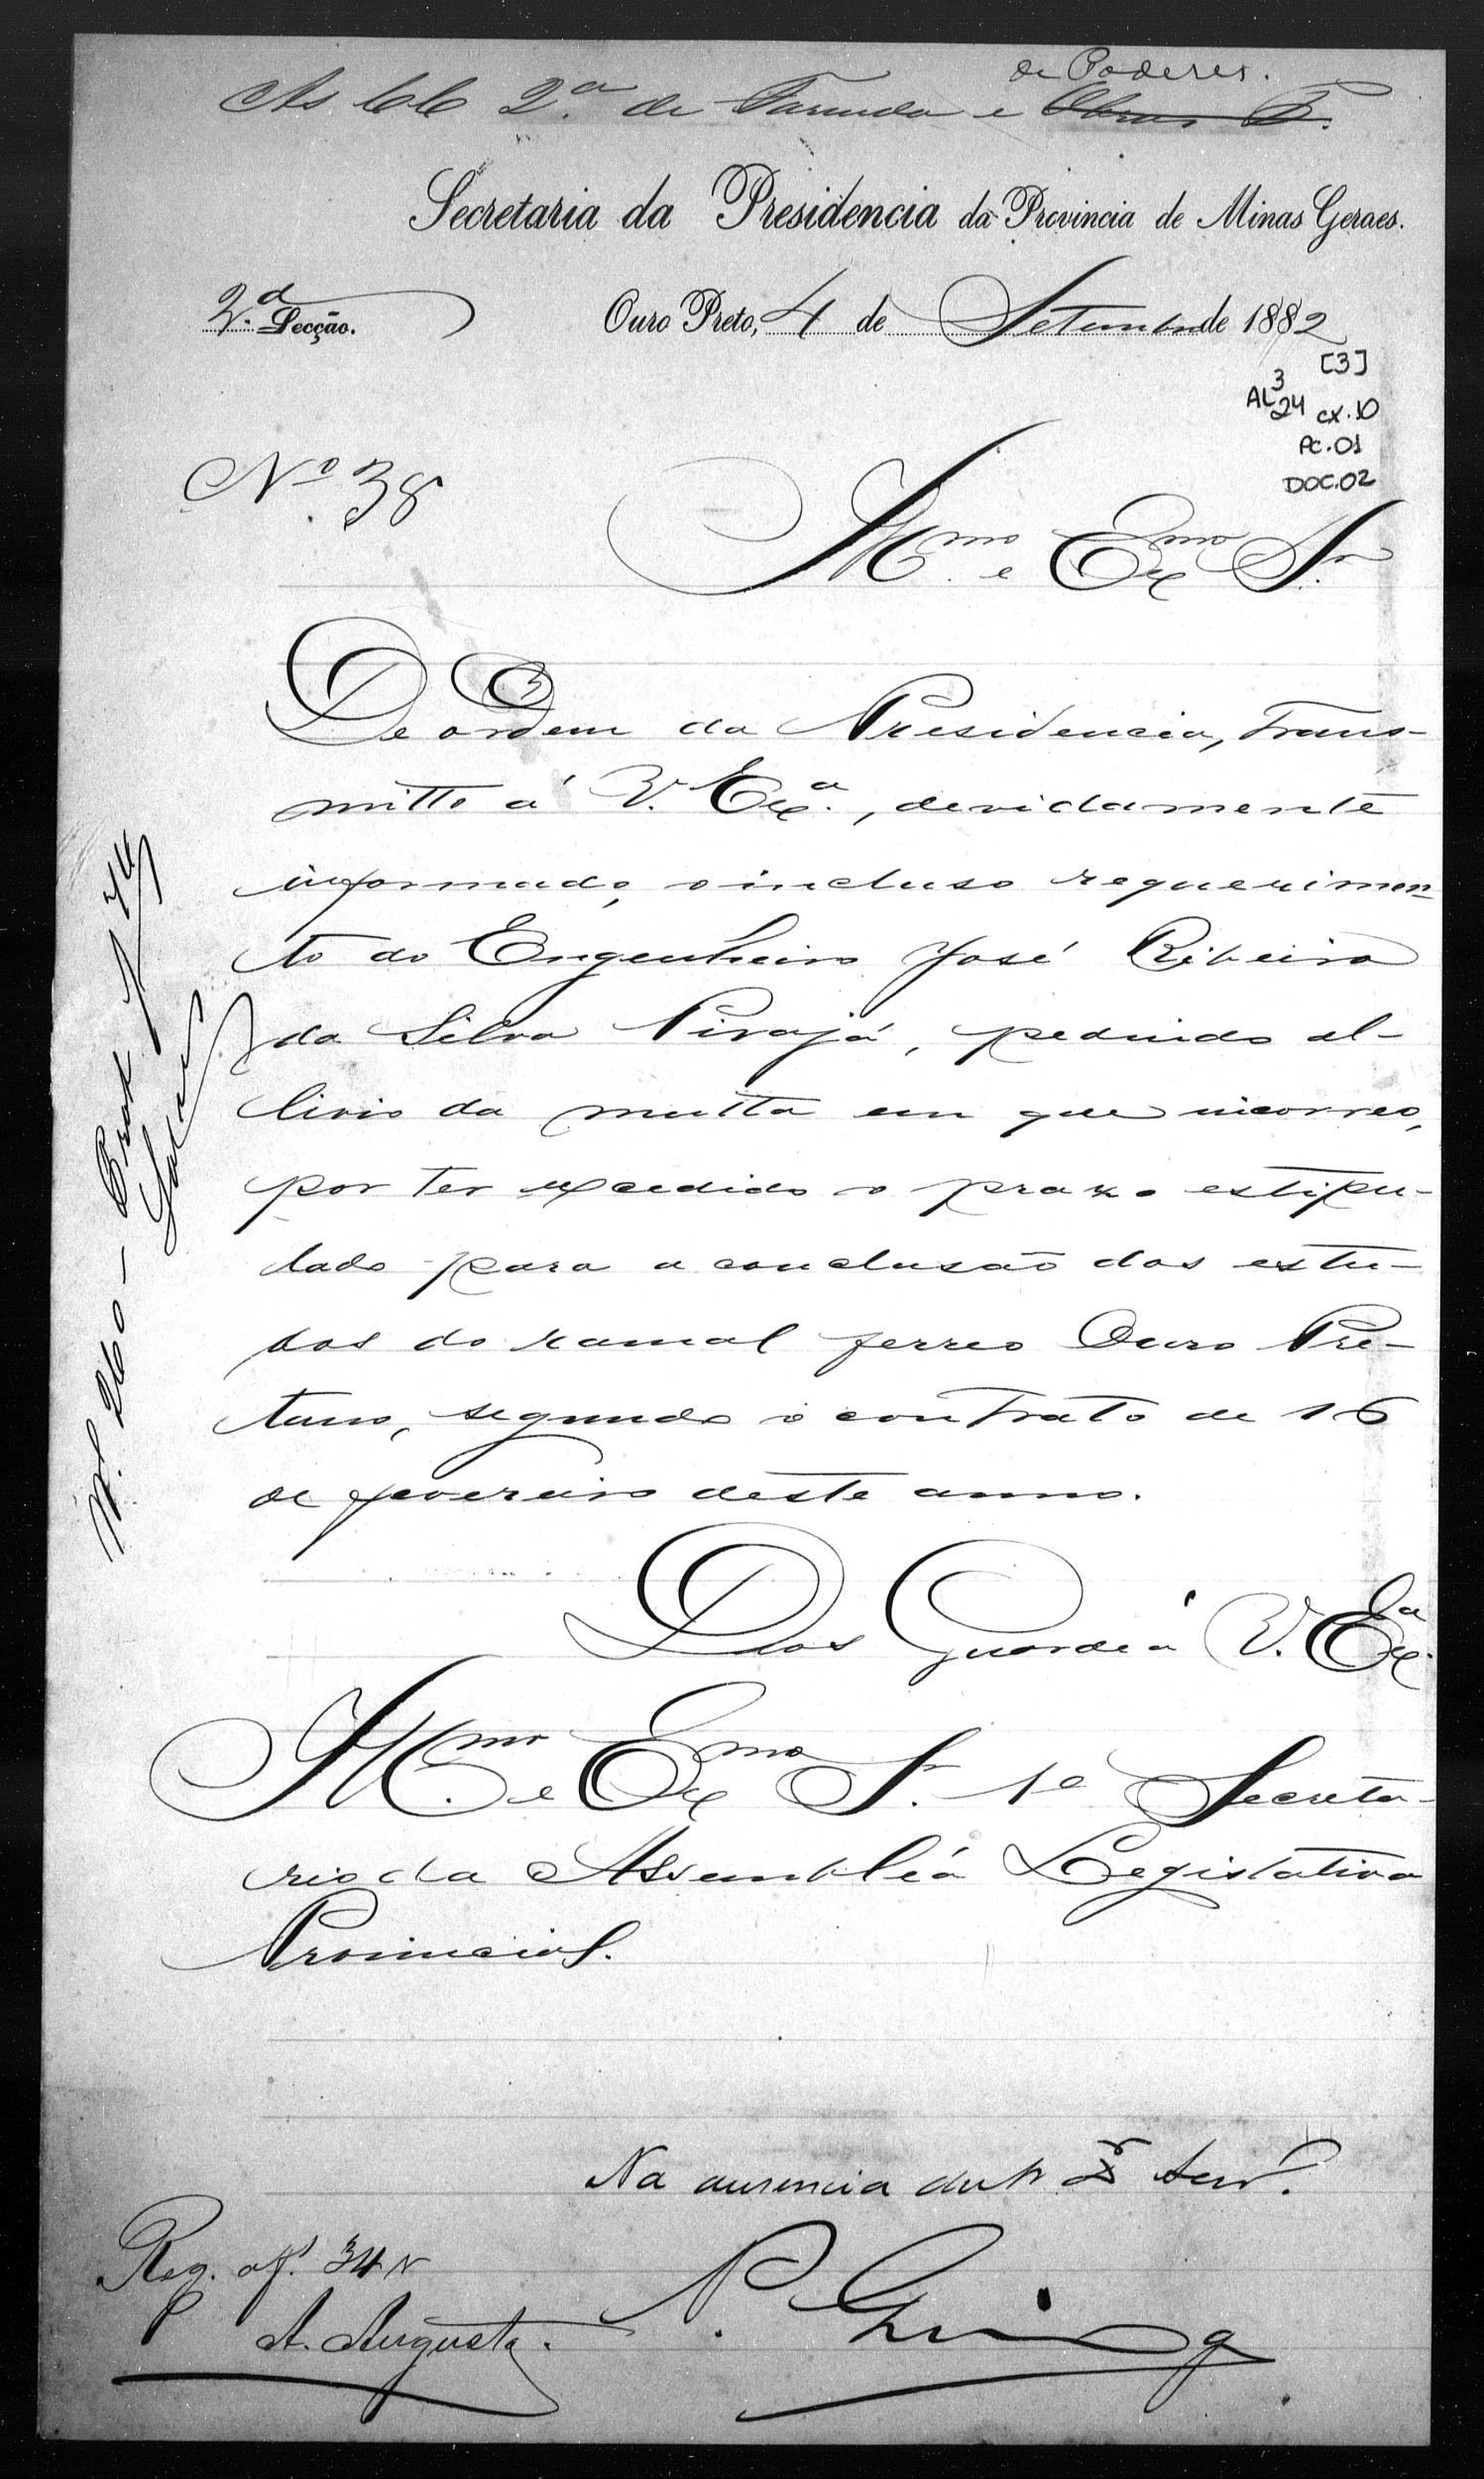 de Poderes.
As CC 2.ª de Fazenda e Obras P.
Secretaria da Presidencia da Provincia de Minas Geraes.
2.ª Secção. Ouro Preto, 4 de Setembro de 1882
[3]
AL 3 24 cx. 10
PC. 01
DOC. 02
Nº 38
Illmo. e Exmo Sr.
De ordem da Presidencia, trans-
mitto á V. Exª., devidamente
informado, o incluso requerimen-
to do Engenheiro José Ribeiro
da Silva Pirajá, pedindo al-
livio da multa em que incorreo,
por ter excedido o prazo estipu-
lado para a conclusão dos estu-
dos do ramal ferreo Ouro Pre-
tano, segundo o contrato de 16
de fevereiro deste anno.
Deos Guarde á V. Exª.
Illmo. e Exmo Sr. 1º Secreta-
rio da Assembléa Legislativa
Provincial.
Na ausencia do Sr.
Reg. a f. 34 v
A. Augusto.
N. 260 –